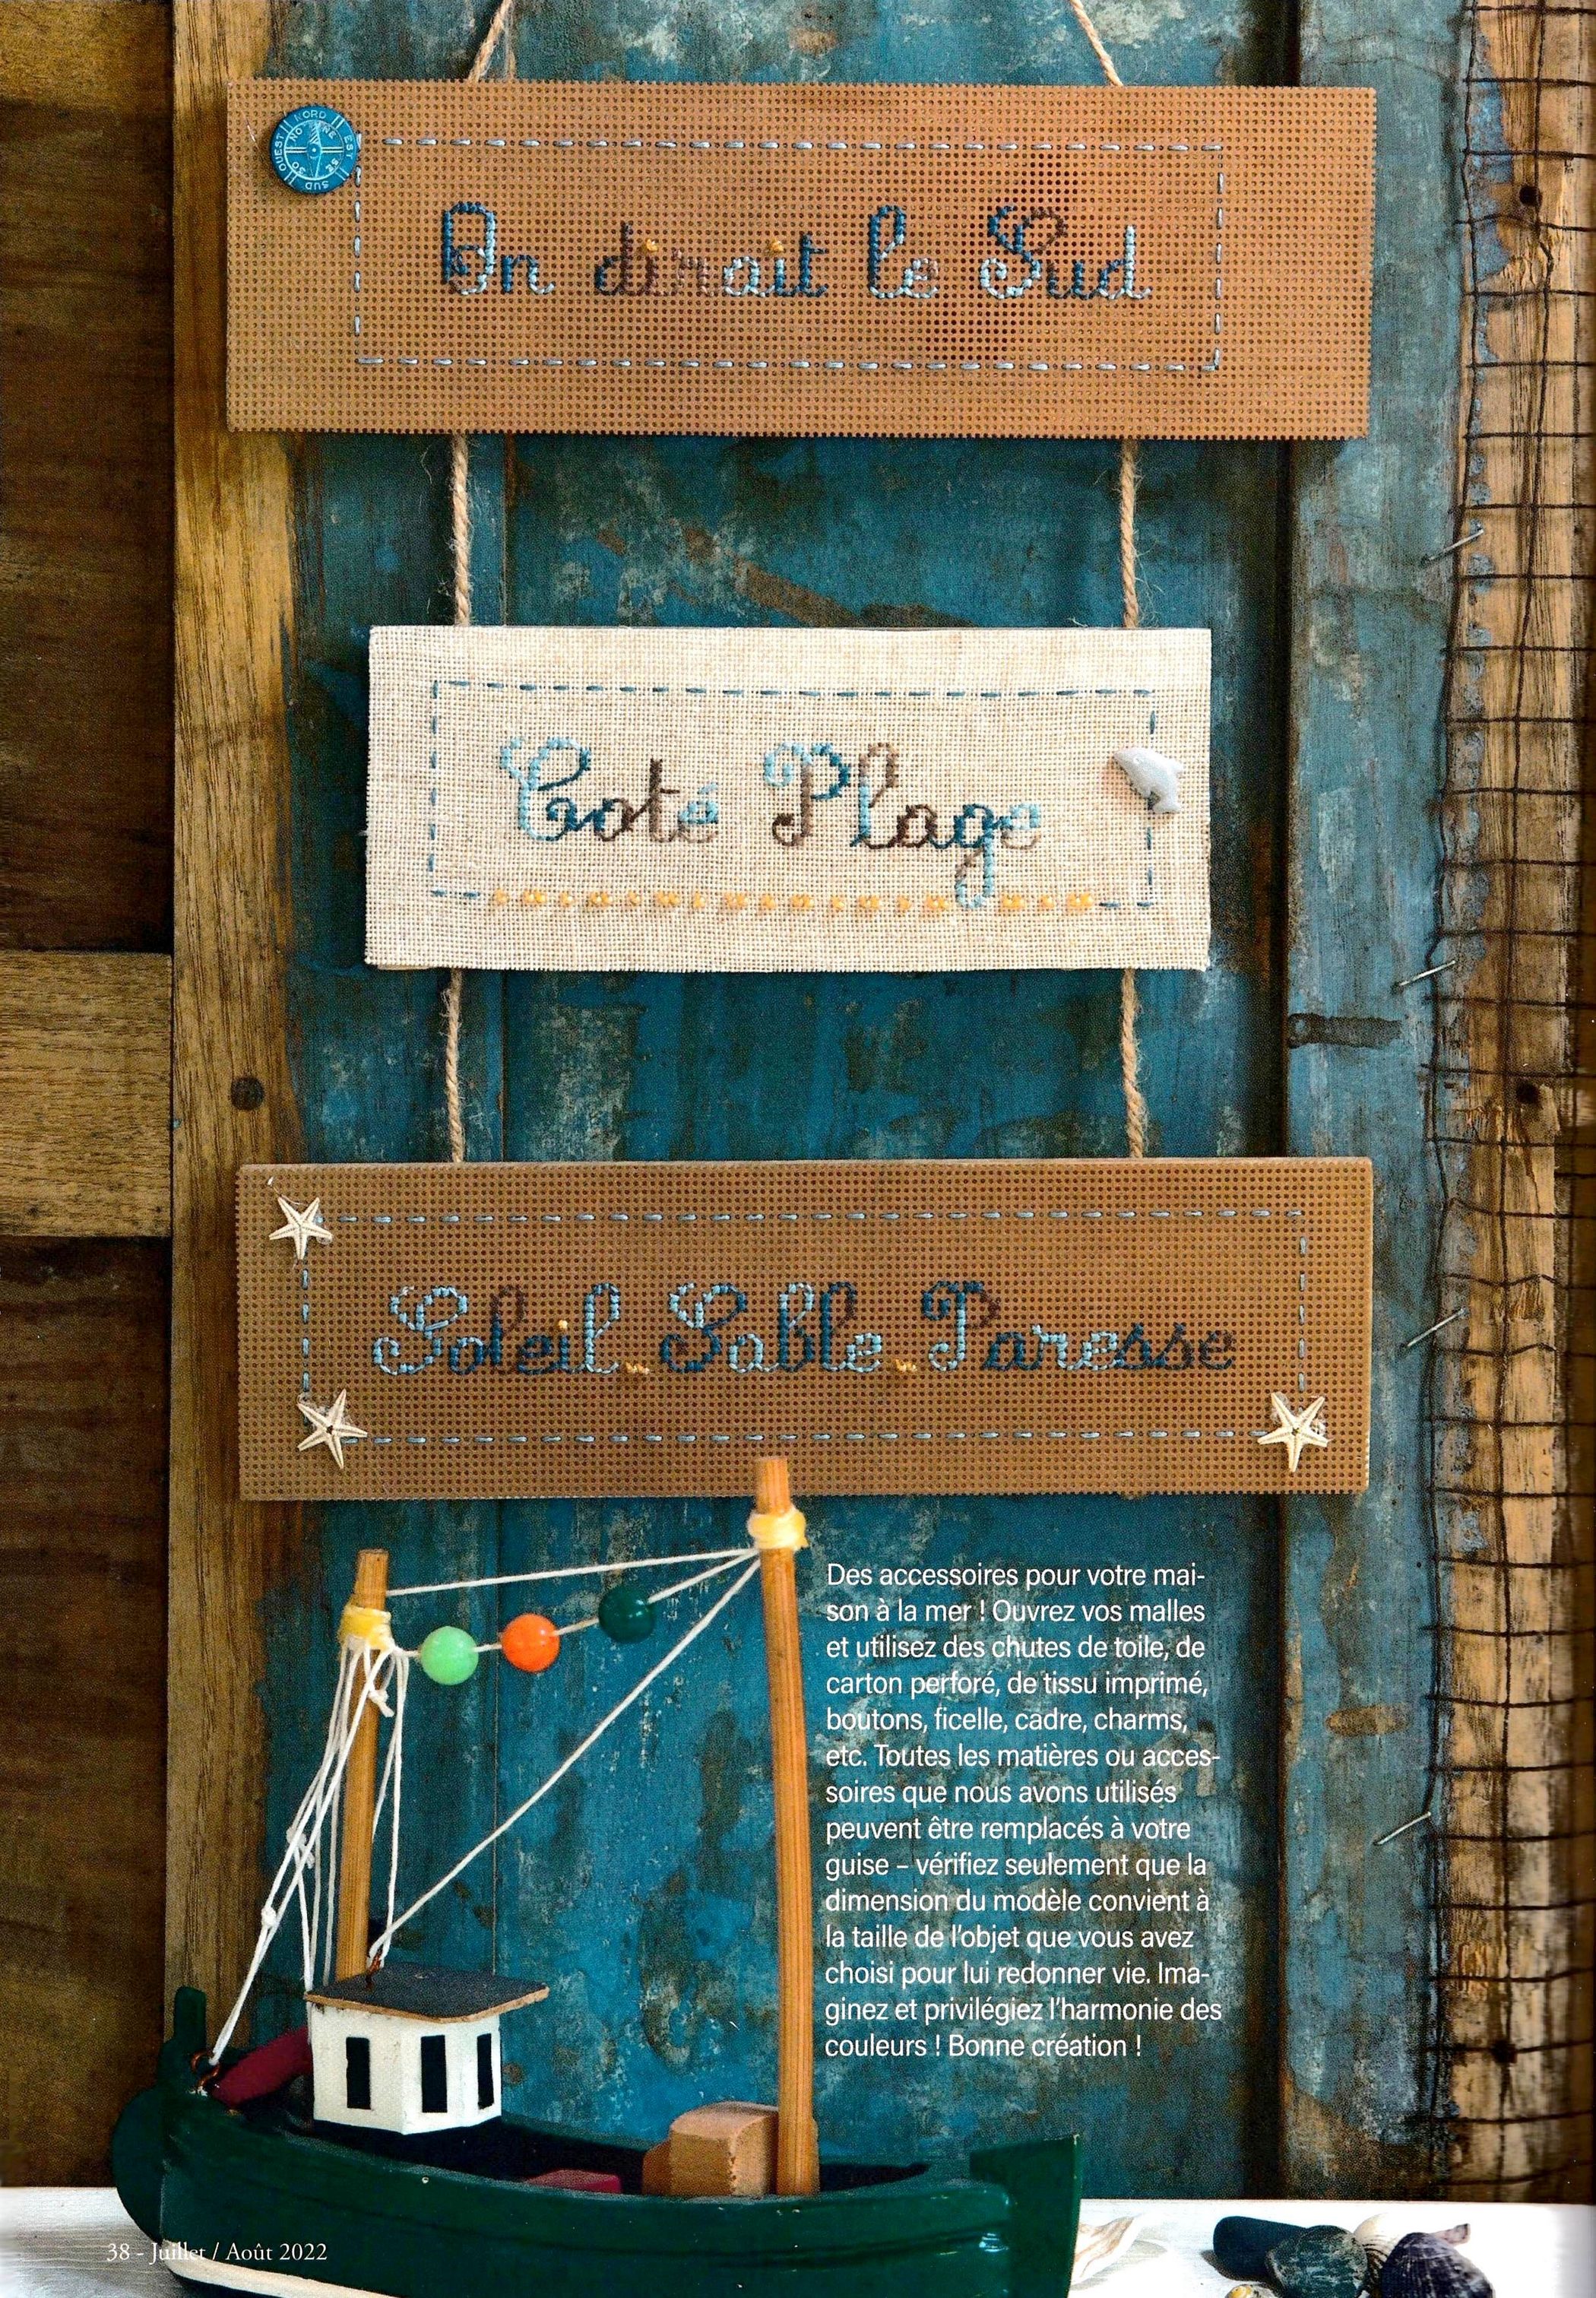 NORD
EST
SE
SUD
SO
OUEST
NO
NE
On dirait le Sud
Coté Plage
Soleil Sable Paresse
Des accessoires pour votre mai-
son à la mer ! Ouvrez vos malles
et utilisez des chutes de toile, de
carton perforé, de tissu imprimé,
boutons, ficelle, cadre, charms,
etc. Toutes les matières ou acces-
soires que nous avons utilisés
peuvent être remplacés à votre
guise – vérifiez seulement que la
dimension du modèle convient à
la taille de l'objet que vous avez
choisi pour lui redonner vie. Ima-
ginez et privilégiez l'harmonie des
couleurs ! Bonne création !
38 - Juillet / Août 2022